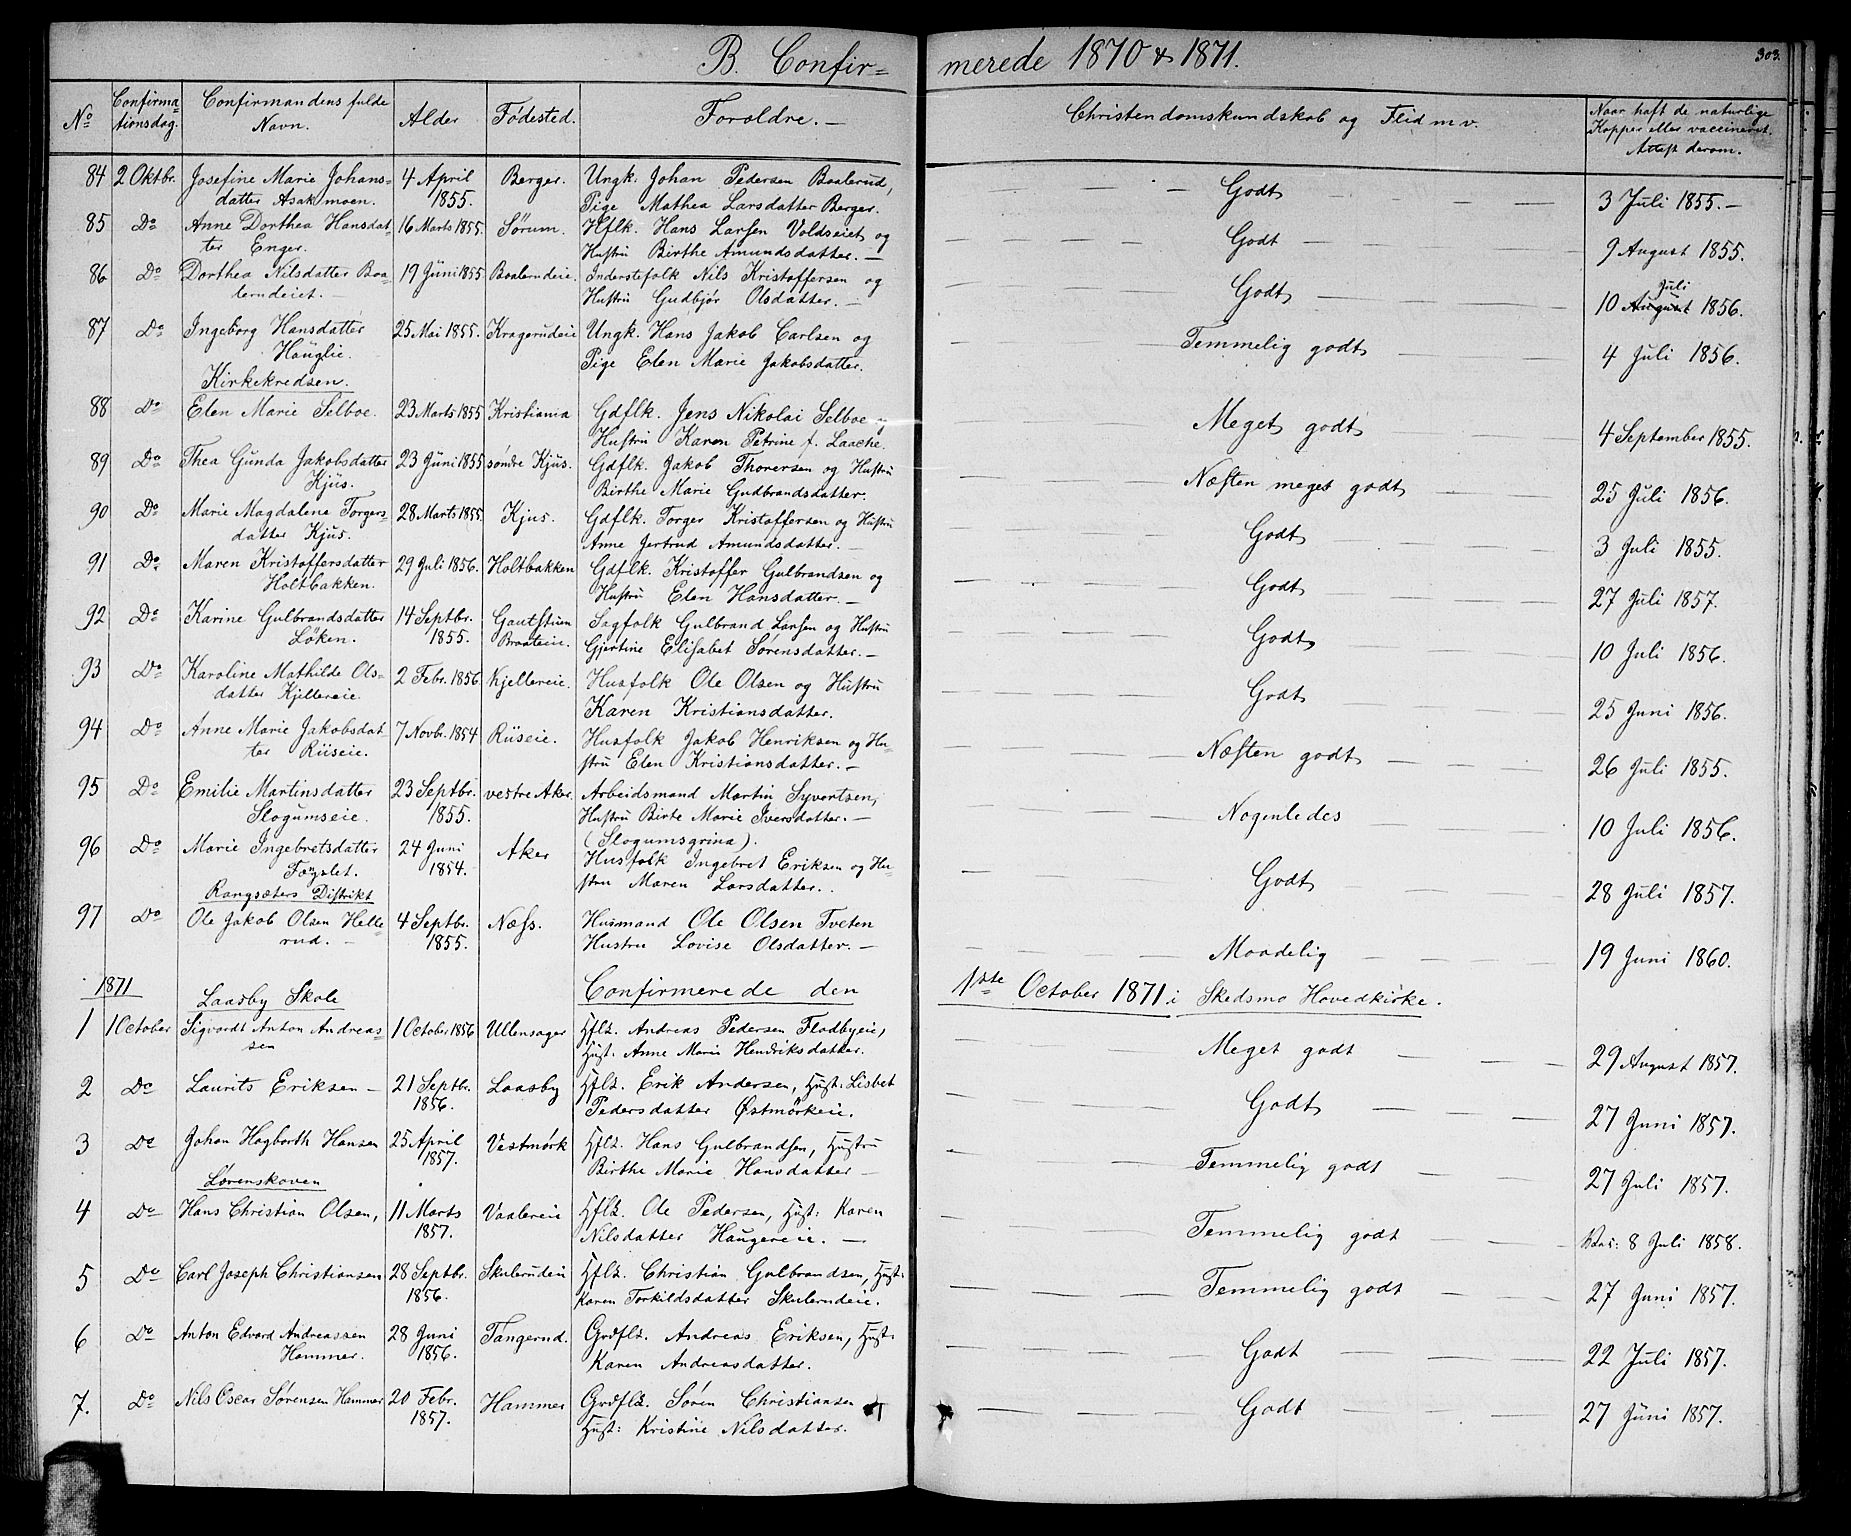 B. Confir=
merede 1870 & 1871.
303.
No
Confirma=
tionsdag.
Confirmandens fulde
Navn.
Alder
Fødested.
Foreldre. —
Christendomskundskab og Flid m v.
Naar haft de naturlige
Kopper eller vaccineret.
Attest derom.
84 2 Oktbr. Josefine Marie Johans= 4 April Berger. Ungk. Johan Pedersen Baalerud, — — — Godt — — — 3 Juli 1855. —
datter Asakmoen. 1855. Pige Mathea Larsdatter Berger.
85 Do Anne Dorthea Hansdat= 16 Marts 1855. Sørum. Hflk. Hans Larsen Voldseiet og — — — Godt — — — 9 August 1855.
ter Enger. Hustru Birthe Amundsdatter. —
86 Do Dorthea Nilsdatter Baa= 19 Juni 1855 Baalerudeie. Inderstefolk Nils Kristoffersen og — — — Godt — — — 10 August Juli 1856.
lerudeiet. — Hustru Gudbjør Olsdatter. —
87 Do Ingeborg Hansdatter 25 Mai 1855. Kragerudeie Ungk. Hans Jakob Carlsen og — — Temmelig godt — — — 4 Juli 1856.
Hauglie. Pige Elen Marie Jakobsdatter.
Kirkekredsen.
88 Do Elen Marie Selboe. 23 Marts 1855 Kristiania Gdflk. Jens Nikolai Selboe og Meget godt — — 4 September 1855.
Hustru Karen Petrine f. Laache.
89 Do Thea Gunda Jakobsdatter 23 Juni 1855 søndre Kjus. Gdflk. Jakob Thorersen og Hustru — — Næsten meget godt — — 25 Juli 1856.
Kjus. Birthe Marie Gudbrandsdatter.
90 Do Marie Magdalene Torgers= 28 Marts 1855. Kjus. Gdflk. Torger Kristoffersen og Hustru — — — Godt — — — 3 Juli 1855.
datter Kjus. Anne Jertrud Amundsdatter. —
91 Do Maren Kristoffersdatter 29 Juli 1856. Holtbakken Gdflk. Kristoffer Gulbrandsen og — — — Godt — — — 27 Juli 1857.
Holtbakken. Hustru Elen Hansdatter. —
92 Do Karine Gulbrandsdatter 14 Septbr. Gautstuen Sagfolk Gulbrand Larsen og Hustru — — — Godt — — — 10 Juli 1856.
Løken. 1855. Braateie. Gjertine Elisabet Sørensdatter. —
93 Do Karoline Mathilde Ols= 2 Febr. 1856. Kjellereie. Husfolk Ole Olsen og Hustru — — — Godt — — — 25 Juni 1856.
datter Kjellereie. Karen Kristiansdatter.
94 Do Anne Marie Jakobsdat= 7 Novbr. 1854 Riiseie. Husfolk Jakob Henriksen og Hu= — — — Næsten godt — — — 26 Juli 1855.
ter Riiseie. stru Elen Kristiansdatter. —
95 Do Emilie Martinsdatter 23 Septbr. vestre Aker. Arbeidsmand Martin Syvertsen, — — — Nogenledes — — — 10 Juli 1856.
Slogumseie. 1855. Hustru Birte Marie Iversdatter. —
(Slogumsgrina).
96 Do Marie Ingebretsdatter 24 Juni Aker Husfolk Ingebret Eriksen og Hu= — — — Godt — — — 28 Juli 1857.
1854. stru Maren Larsdatter.
Rangsæters Distrikt
97 Do Ole Jakob Olsen Helle= 4 Septbr. Næss. Husmand Ole Olsen Tveten — — — Maadelig — — — 19 Juni 1860.
rud. — 1855. Hustru Lovise Olsdatter. —
1871 Laasby Skole Confirmerede den 1ste October 1871 i Skedsmo Hovedkirke.
1 1 October Sigvardt Anton Andreas= 1 October 1856 Ullensager Hflk. Andreas Pedersen Flodbyeie, — — — Meget godt — — — 29 August 1857.
sen Hust: Anne Marie Hendriksdatter.
2 Do Laurits Eriksen — 21 Septbr. Laasby Hflk. Erik Andersen, Hust: Lisbet — — — Godt — — — 27 Juni 1857.
1856. Pedersdatter Østmørkeie.
3 Do Johan Hagbarth Hansen 25 April Vestmørk Hflk. Hans Gulbrandsen, Hustru — — — Temmelig godt — — 27 Juli 1857.
1857. Birthe Marie Hansdatter —
Lørenskoven
4 Do Hans Christian Olsen, 11 Marts Vaalereie Hflk. Ole Pedersen, Hust: Karen — — — Temmelig godt — — — 8 Juli 1858.
1857. Nilsdatter Haugereie. —
5 Do Carl Joseph Christiansen 28 Septbr. Skulerudeie Hflk. Christian Gulbrandsen, Hust: — — — Temmelig godt — — — 27 Juni 1857.
1856. Karen Torkildsdatter Skulerudeie.
6 Do Anton Edvard Andreassen 28 Juni Tangerud. Grdflk. Andreas Eriksen, Hust: — — — Godt — — — 22 Juli 1857.
Hammer. 1856. Karen Andreasdatter.
7. Do Nils Oscar Sørensen Hammer 20 Febr. Hammer Grdflk. Søren Christiansen — — — Godt — — — 27 Juni 1857.
1857. Hust: Kristine Nilsdatter.